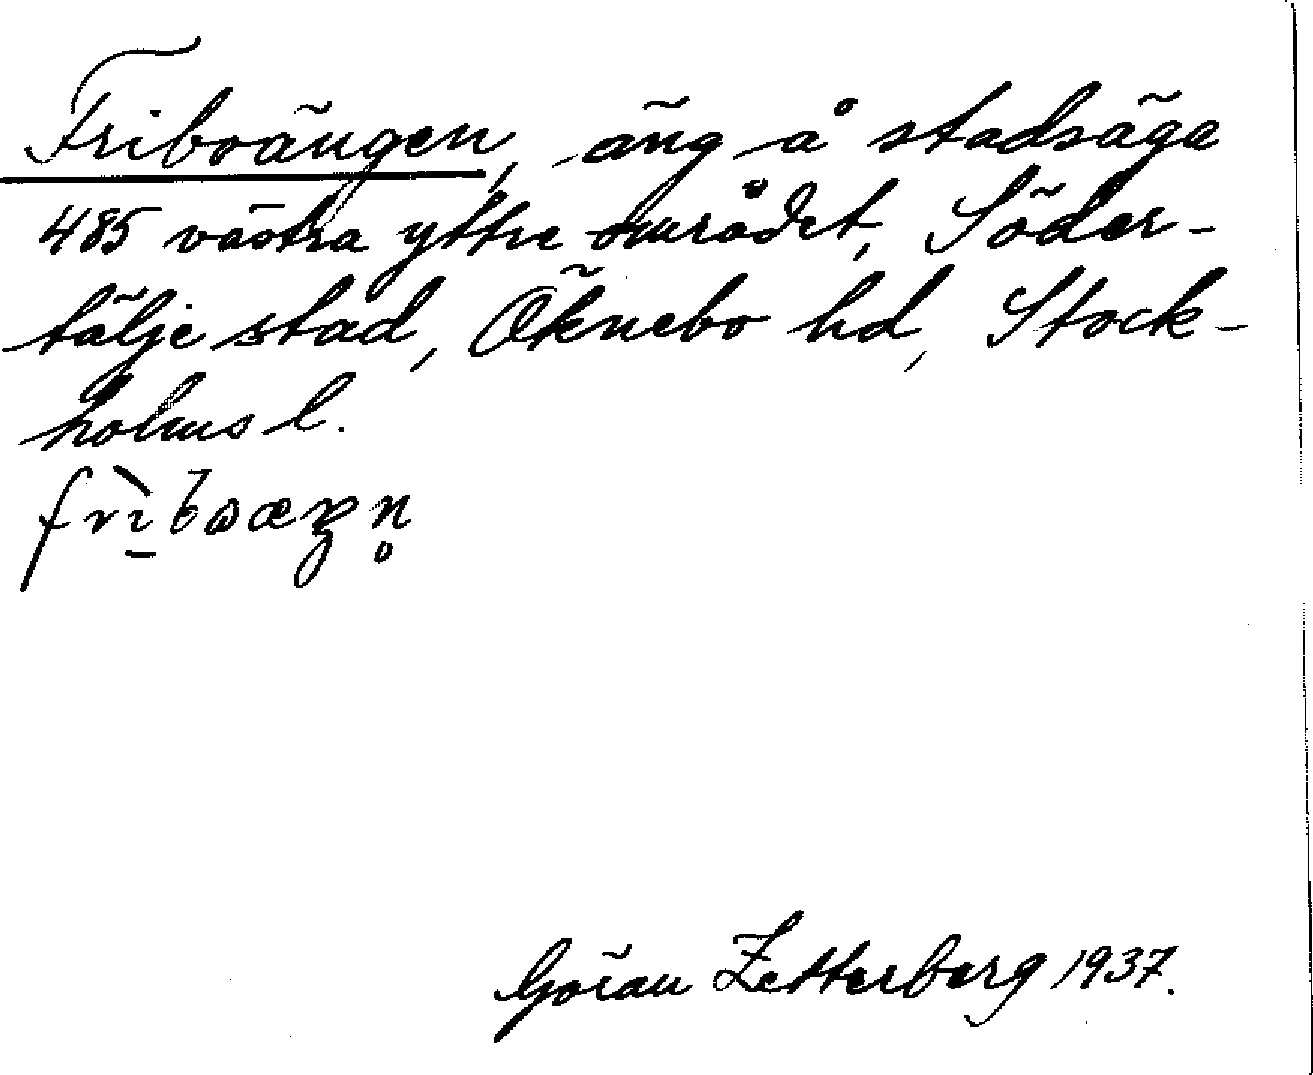 Friboängen, äng å stadsäga
485 västra yttre området, Söder-
tälje stad, Öknebo hd, Stock-
holms l.
frìbωæŋn̥
Göran Zetterberg 1937.